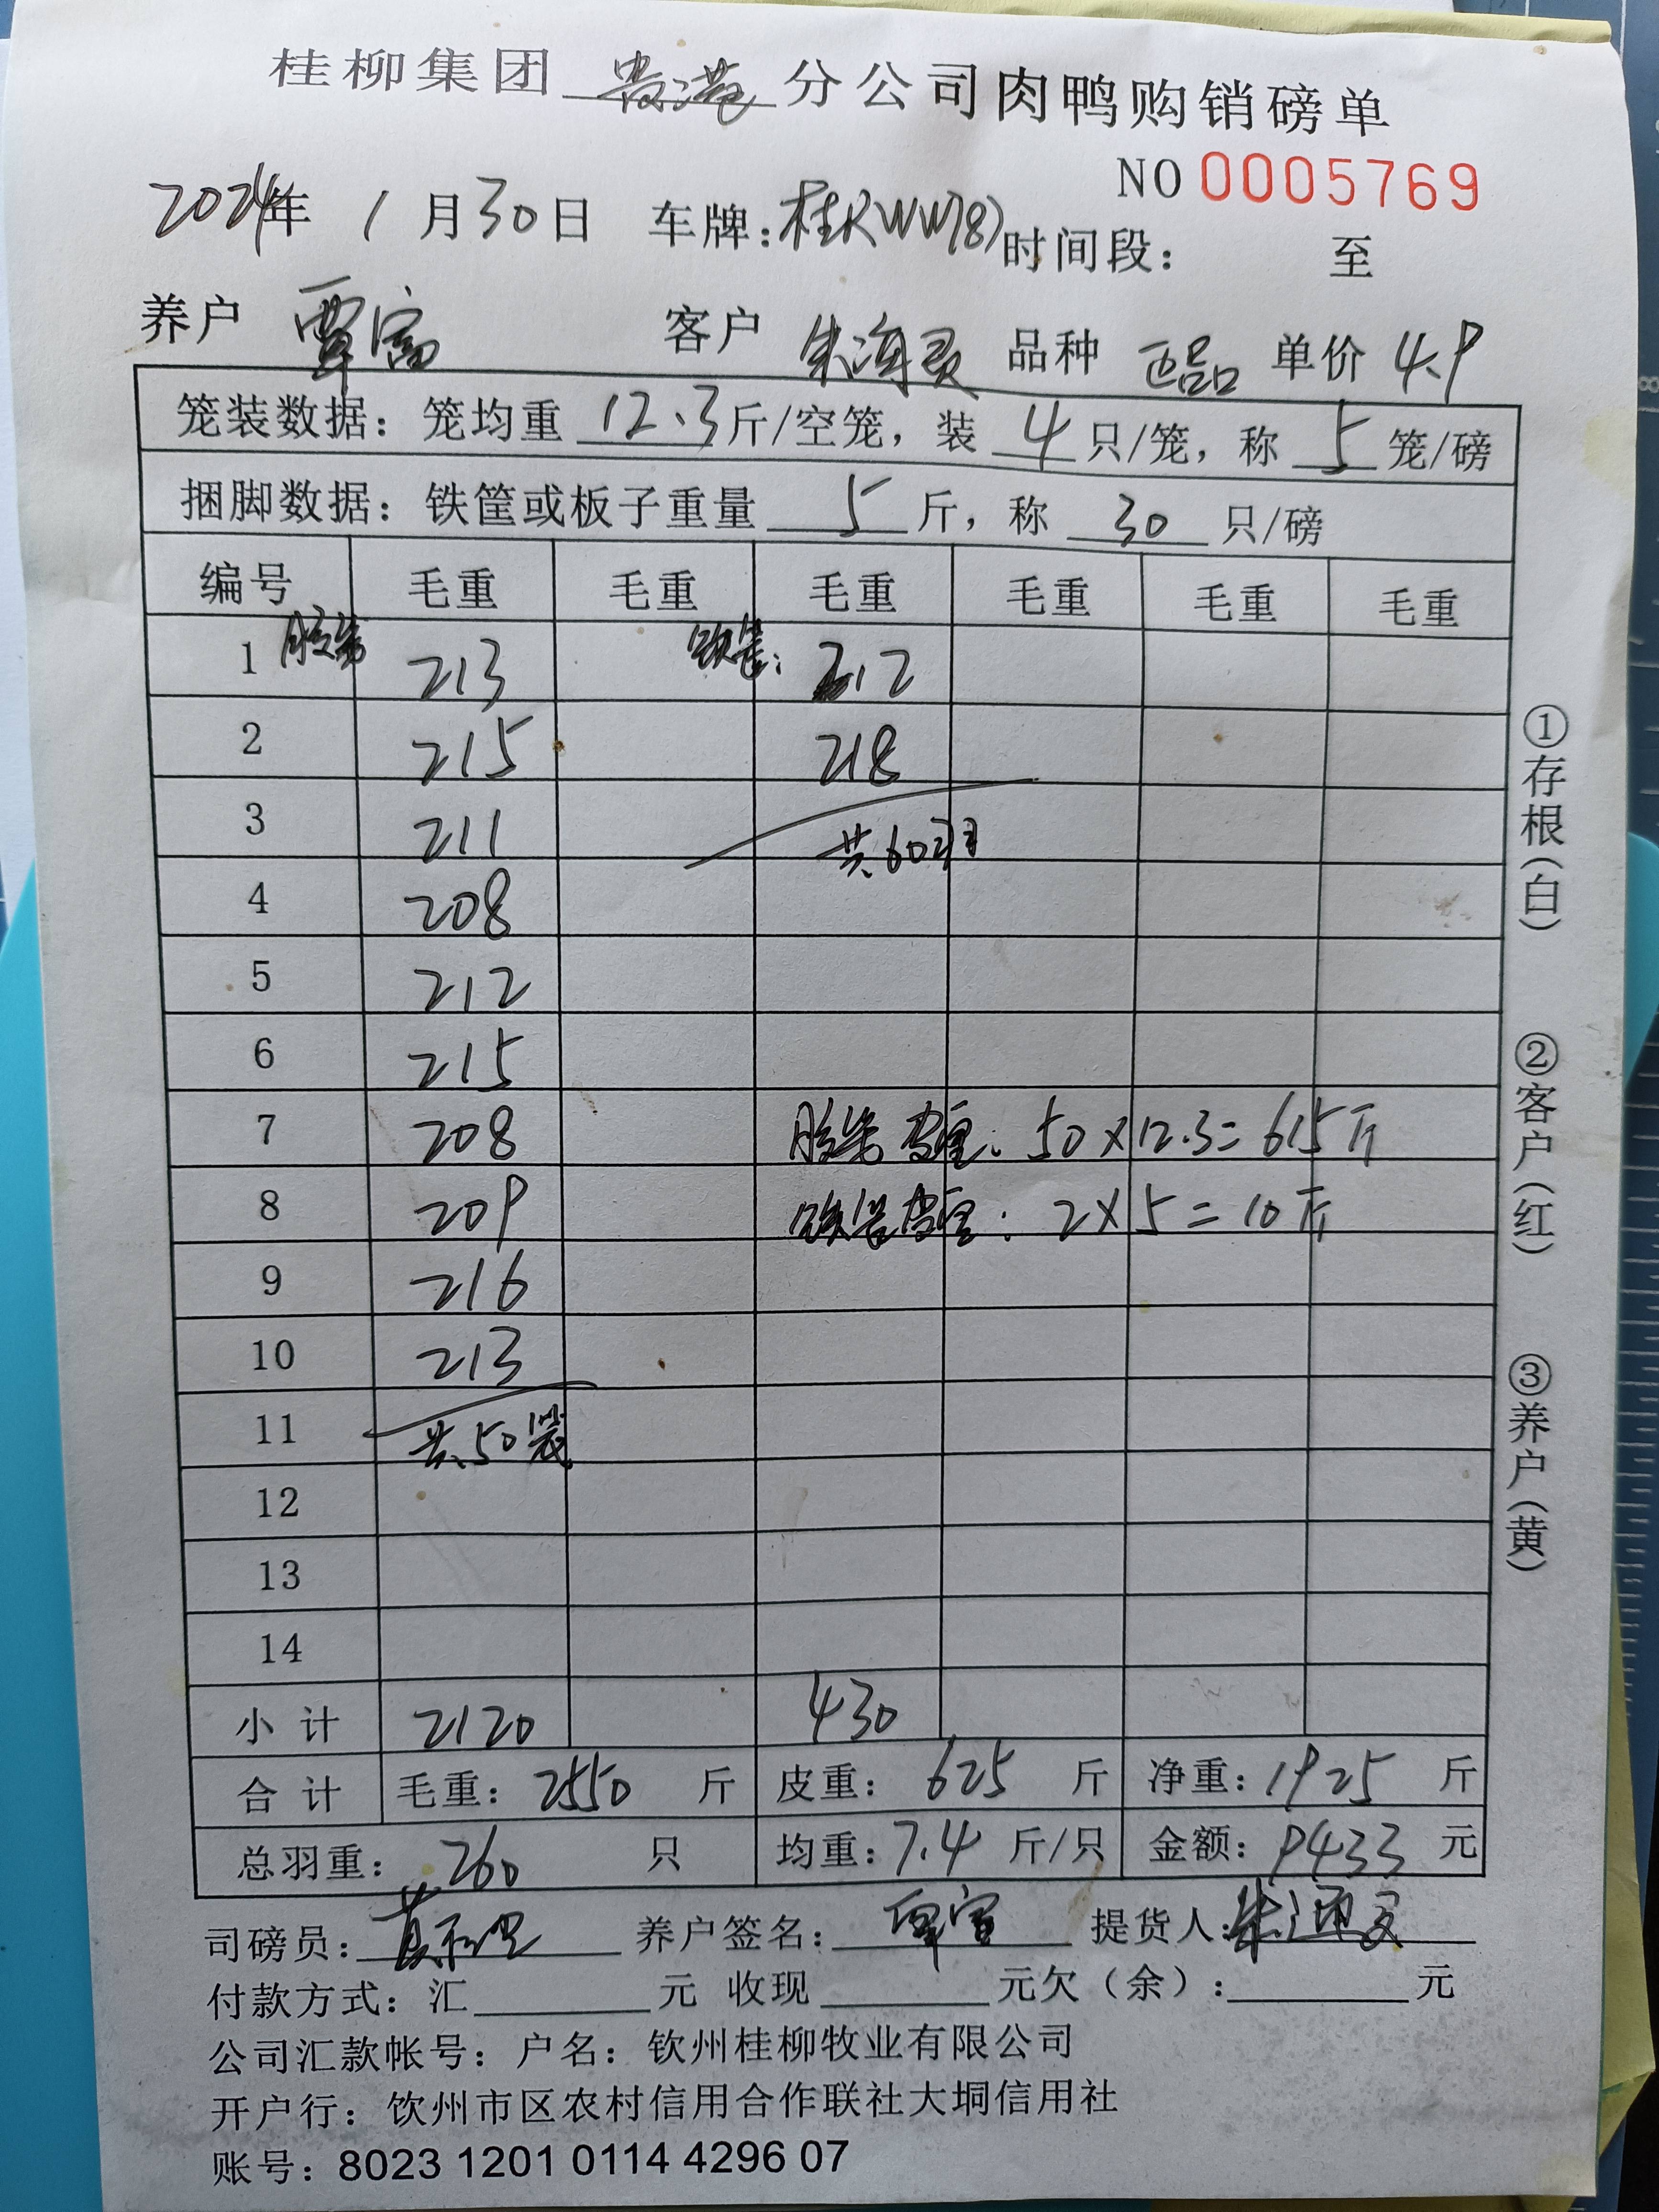 桂柳集团 贵港 分公司肉鸭购销磅单
NO 0005769
2024年 1 月 30 日 车牌：桂KWW787 时间段： 至
养户 覃富 客户 品种 正品 单价 4.9
笼装数据：笼均重 12.3 斤/空笼，装 4 只/笼，称 5 笼/磅
捆脚数据：铁筐或板子重量 5 斤，称 30 只/磅
编号 毛重 毛重 毛重 毛重 毛重 毛重
1 胶笼 213 铁筐： 212
2 215 218
3 211 共60羽
4 208
5 212
6 215
7 208 胶笼皮重：50×12.3=615斤
8 209 铁筐皮重：2×5=10斤
9 216
10 213
11 共50笼
12
13
14
小计 2120 430
合计 毛重：2550 斤 皮重：625 斤 净重：1925 斤
总羽重：260 只 均重：7.4 斤/只 金额：9433 元
司磅员： 养户签名： 提货人：
付款方式：汇 元 收现 元欠（余）： 元
公司汇款帐号：户名：钦州桂柳牧业有限公司
开户行：钦州市区农村信用合作联社大垌信用社
账号：8023 1201 0114 4296 07
①存根（白）
②客户（红）
③养户（黄）